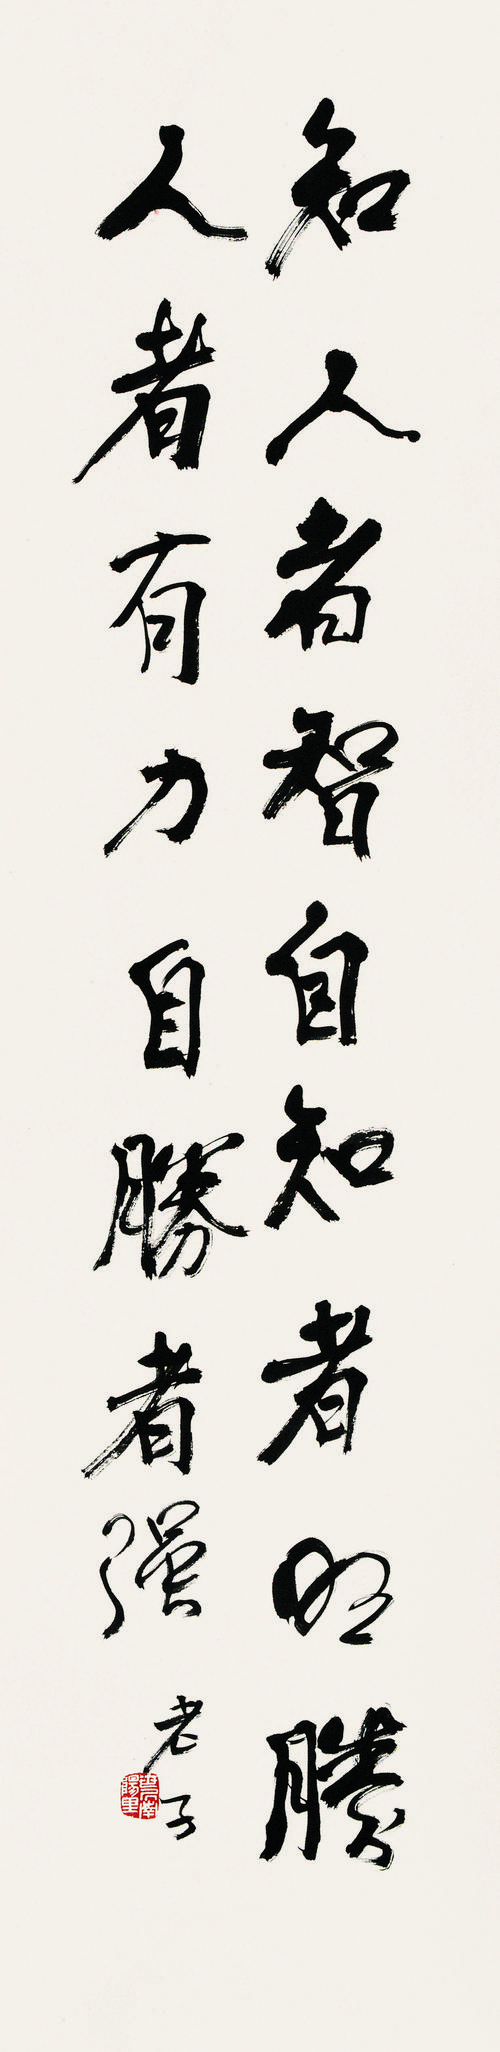 知人者智自知者明勝
人者有力自勝者强
老子